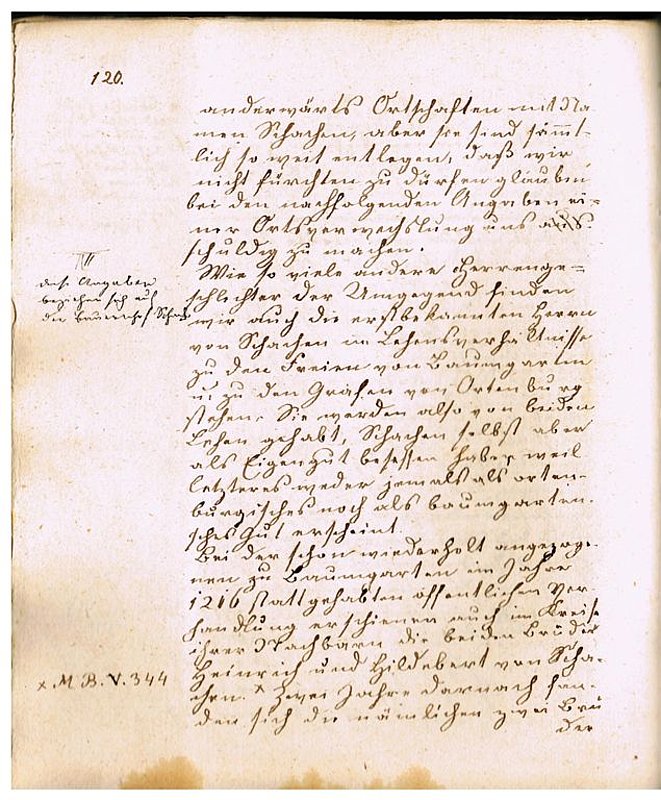 120.
anderwärts Ortschaften mit Na-
men Schachen, aber sie sind sämmt-
lich so weit entlegen, daß wir
nicht fürchten zu dürfen glauben
bei den nachfolgenden Angaben ei=
ner Ortsverwechslung uns
schuldig zu machen.
diese Angaben
beziehen sich auf
den Bauernhof Schach
Wie so viele andere Herrenge=
schlechter der Umgegend finden
wir auch die erstbekannten Herrn
von Schachen im Lehensverhältnisse
zu den Freien von Baumgarten
u. zu den Grafen von Ortenburg
stehen. Sie werden also von beiden
Lehen gehabt, Schachen selbst aber
als Eigengut besessen haben, weil
letzteres weder jemals als orten-
burgisches noch als baumgarten-
sches Gut erscheint.
Bei der schon wiederholt angezoge-
nen zu Baumgarten im Jahre
1216 stattgehabten öffentlichen Ver-
handlung erschienen auch im Kreise
ihrer Nachbarn die beiden Brüder
Heinrich und Hildebert von Scha-
chen. x Zwei Jahre darnach fan-
den sich die nämlichen zwei Brü
der
x M. B. V. 344